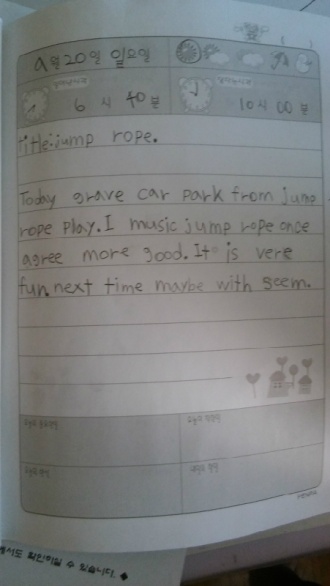 9월 20일 일요일
6시 40분
10시 00분
title: jump rope.
Today grave car park from jump
rope play. I music jump rope once
agree more good. It is vere
fun. next time maybe with seem.